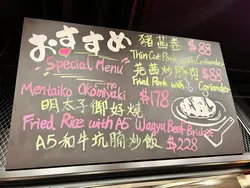 おすすめ
Special Menu
豬醬卷 $88
Thin Cut Pork with Coriander
芫茜炒豚肉 $88
Fried Pork with Coriander
Mentaiko Okomiyaki $178
明太子御好燒
Fried Rice with A5 Wagyu Beef Brisket
A5和牛坑腩炒飯 $228